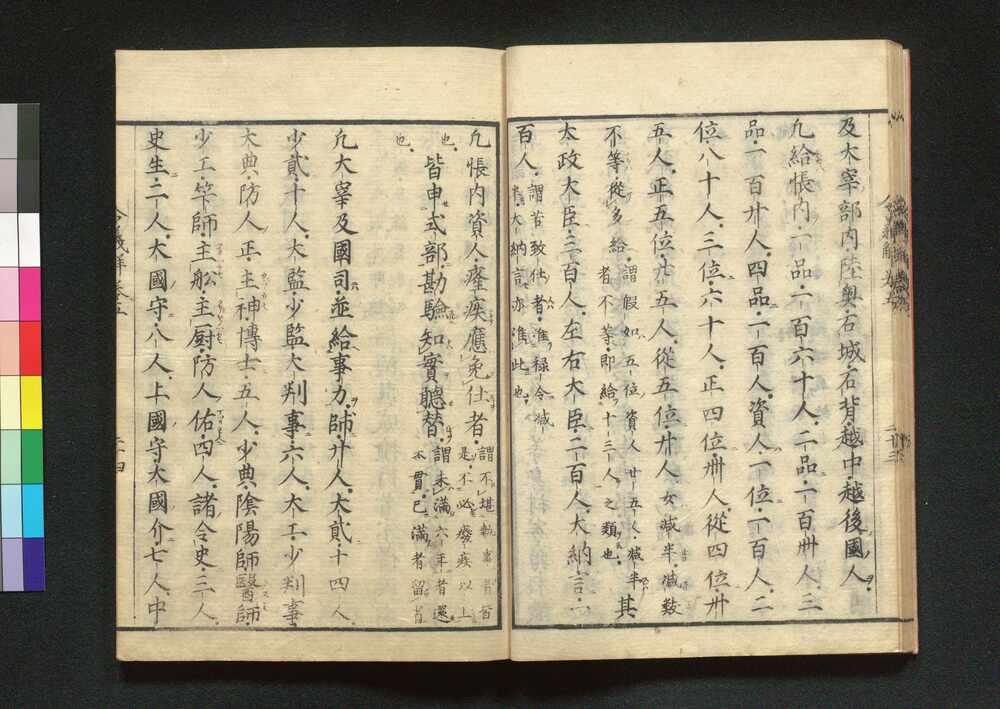 及大宰部内陸奥石城石背越中越後國人
凡給帳内一品一百六十人二品一百卌人三
品一百廿人四品一百人資人一位一百人二
位八十人三位六十人正四位卌人從四位卅
五人正五位廾五人從五位廾人女減半減數
不等從多給謂假如五位資人廿五人減半
者不等即給十三人之類也其
太政大臣三百人左右大臣二百人大納言一
百人謂若致仕者准禄令減
半大納言亦准此也
凡帳内資人癃疾應免仕者謂不堪執事者皆
是不必癈疾以上
也皆申式部勘驗知實聽替謂未滿六年者還
本貫已滿者留省
也
凡大宰及國司並給事力帥廾人大貳十四人
少貳十人大監少監大判事六人大工少判事
大典防人正主神博士五人少典陰陽師醫師
少工笇師主舩主厨防人佑四人諸令史三人
史生二人大國守八人上國守大國介七人中
令義解卷五
二十四